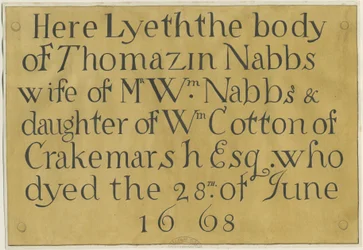 Here Lyeth the body
of Thomazin Nabbs
wife of Mr Wm. Nabbs &
daughter of Wm Cotton of
Crakemarsh Esq. who
dyed the 28th. of June
1668